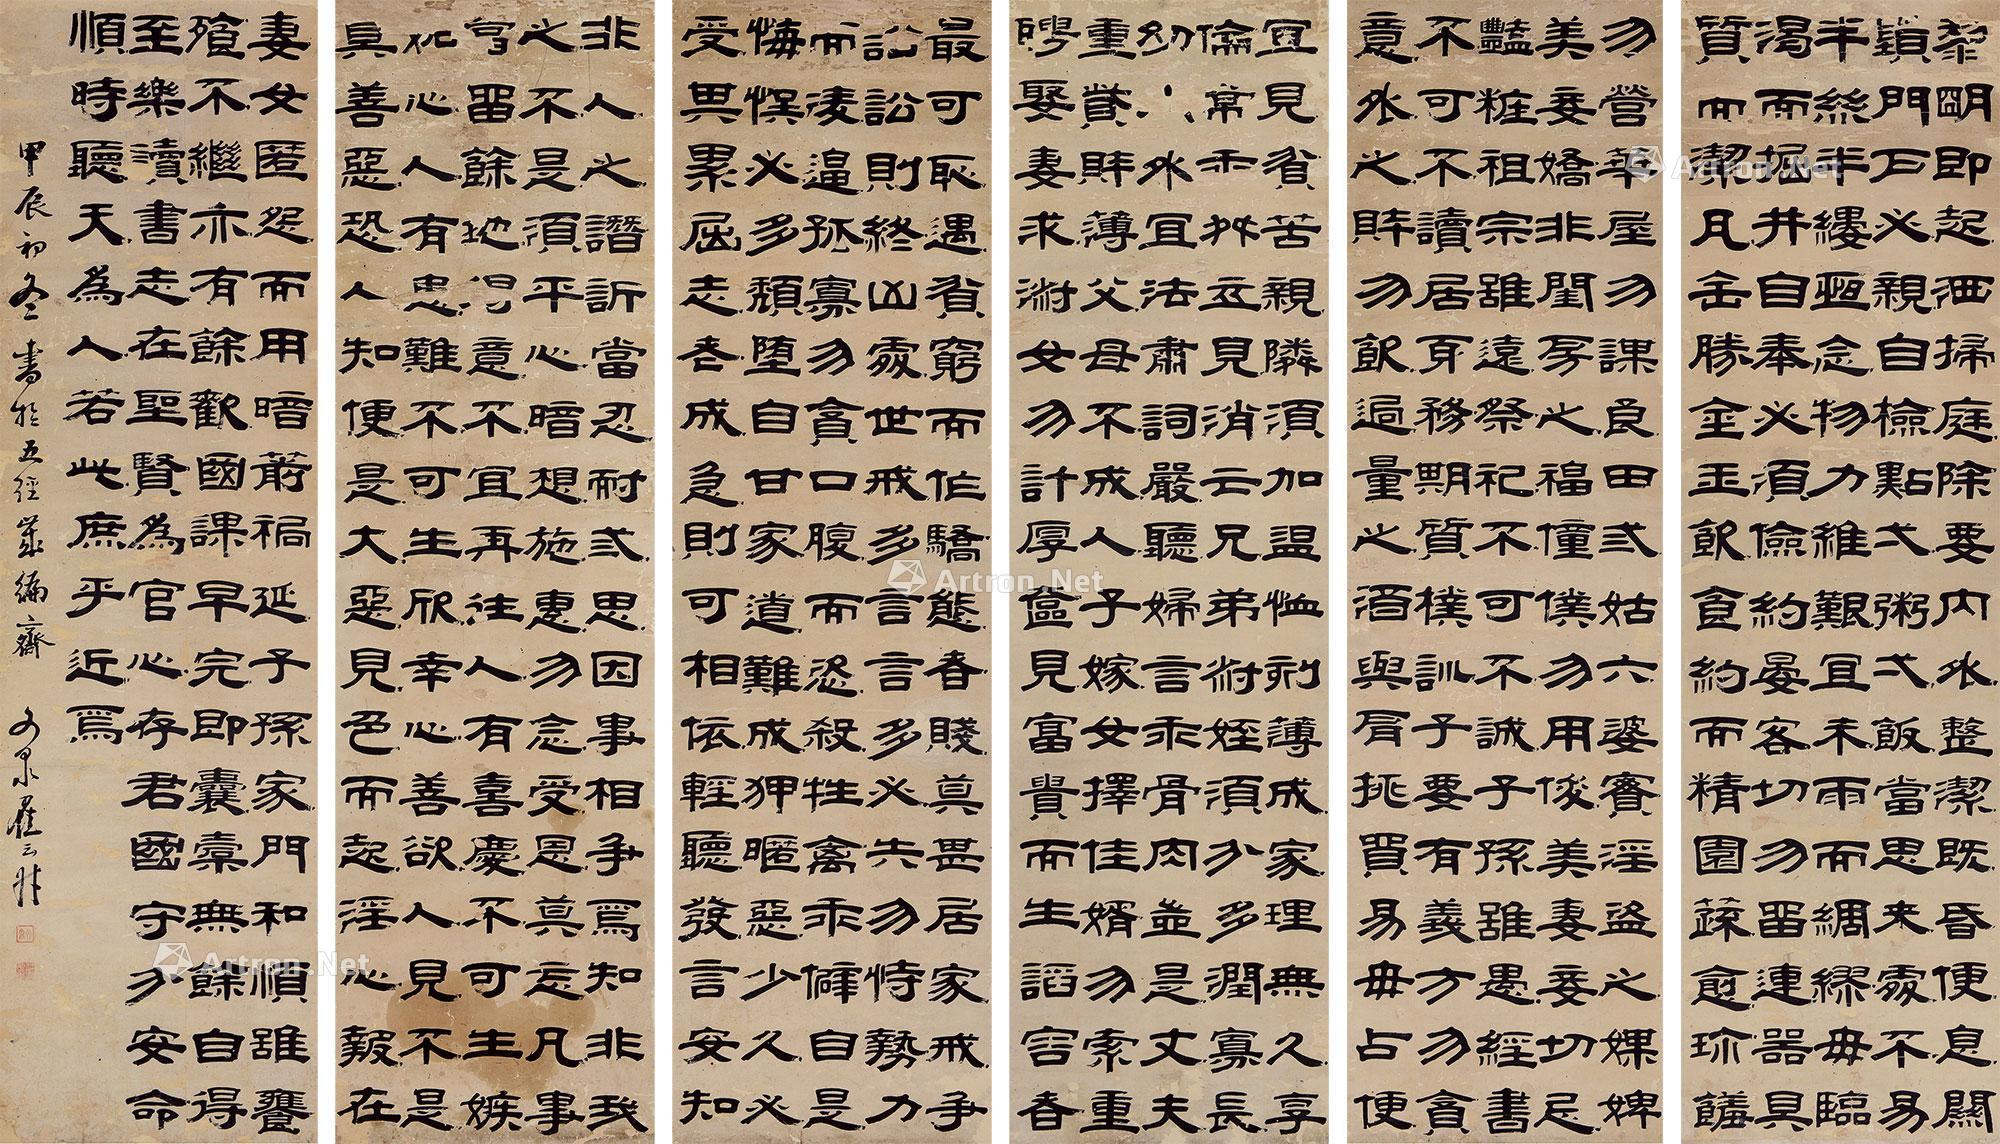 黎明即起洒掃庭除要內外整潔既昏便息關
鎖門戶必親自檢點弌粥弌飯當思來處不易
半絲半縷恆念物力維艱宜未雨而綢繆毋臨
渴而掘井自奉必須儉約晏客切勿留連器具
質而潔瓦缶勝金玉飲食約而精園蔬愈珍饈
勿營華屋勿課良田弎姑六婆實淫盜之媒婢
美妾嬌非閨房之福僮僕勿用俊美妻妾切忌
豔粧祖宗雖遠祭祀不可不誠子孫雖愚經書
不可不讀居身務期質樸訓子要有義方勿貪
意外之財勿飲過量之酒與肩挑貿易毋占便
宜見貧苦親隣須加溫恤刻薄成家理無久享
倫常乖舛立見消亡兄弟叔姪須分多潤寡長
幼內外宜法肅詞嚴聽婦言乖骨肉豈是丈夫
重貲財薄父母不成人子嫁女擇佳婿勿索重
聘娶妻求淑女勿計厚奩見富貴而生諂容者
最可恥遇貧窮而作驕態者賤莫甚居家戒爭
訟訟則終凶處世戒多言言多必失勿恃勢力
而凌逼孤寡勿貪口腹而恣殺牲禽乖僻自是
悔悞必多頹墮自甘家道難成狎暱惡少久必
受其累屈志老成急則可相依輕聽發言安知
非人之譖訴當忍耐弎思因事相爭焉知非我
之不是須平心暗想施惠勿念受恩莫忘凡事
當留餘地得意不宜再往人有喜慶不可生嫉
妒心人有患難不可生欣幸心善欲人見不是
真善惡恐人知便是大惡見色而起淫心報在
妻女匿怨而用暗箭禍延子孫家門和順雖饔
飧不繼亦有餘歡國課早完即囊橐無餘自得
至樂讀書志在聖賢為官心存君國守分安命
順時聽天為人若此庶乎近焉
甲辰初冬書於五經歲徧齋 文泉翟云升
Artron.Net
Artron.Net
Artron.Net